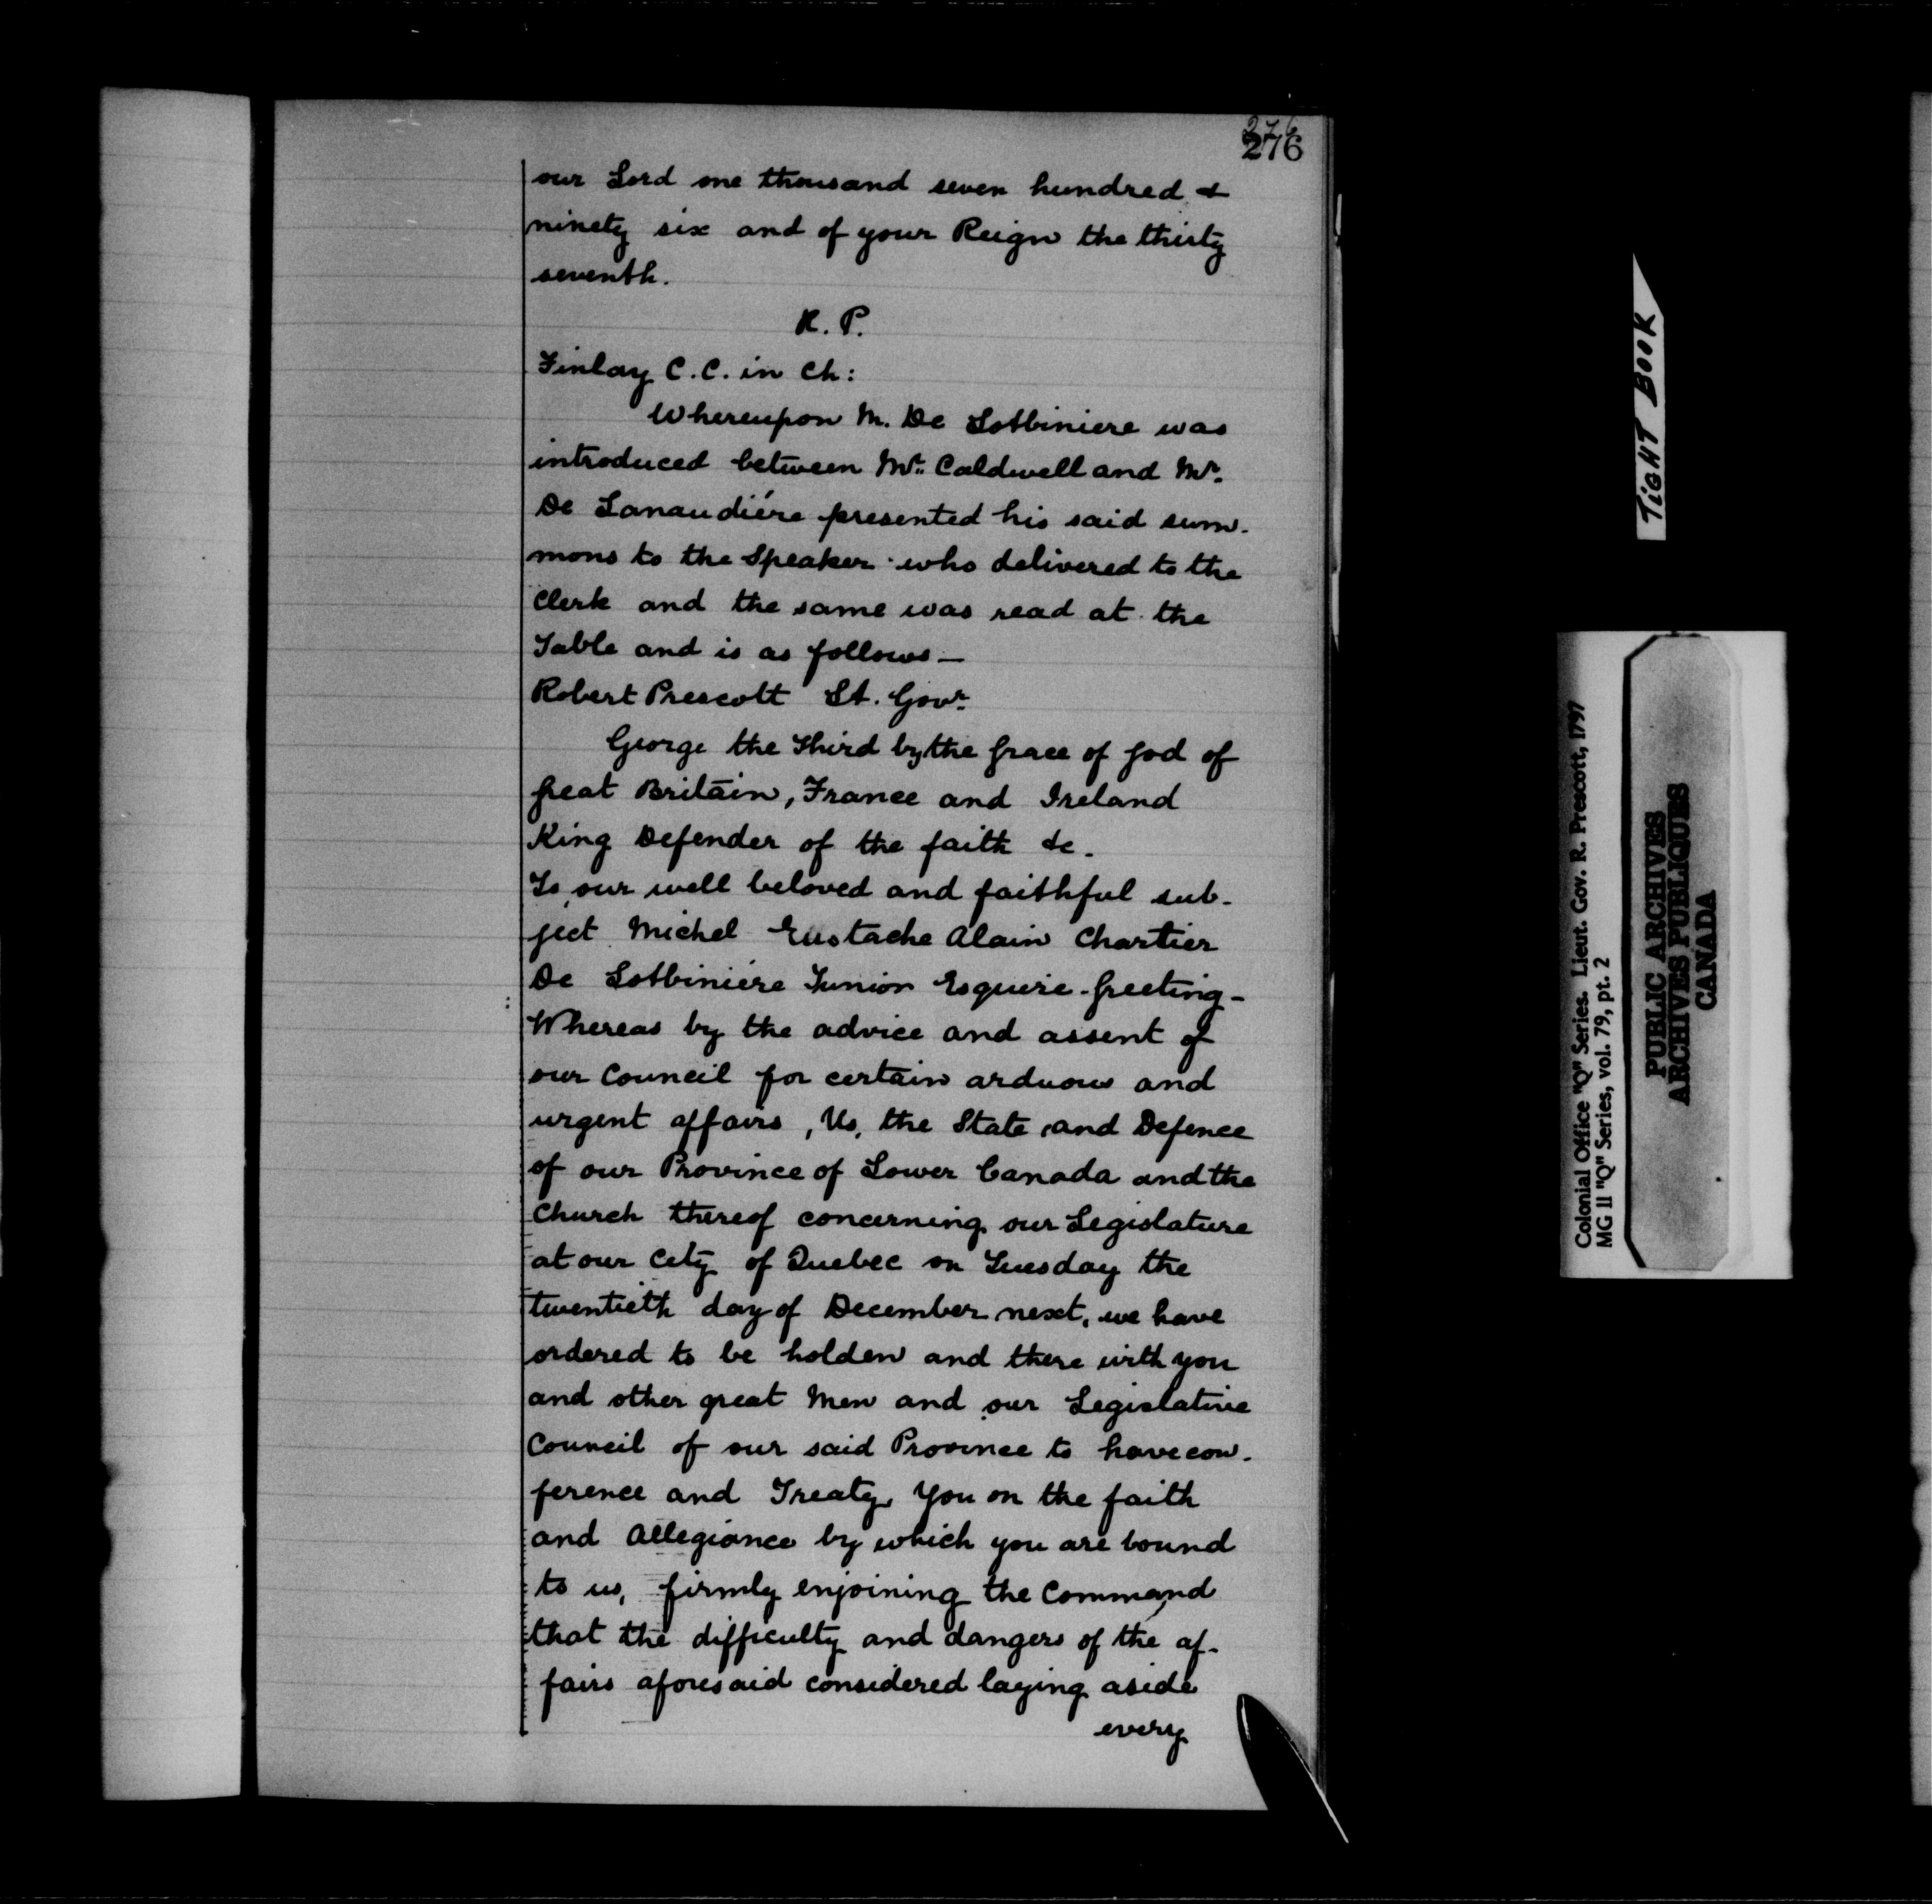 276
276
our Lord one thousand seven hundred &
ninety six and of your Reign the thirty
seventh.
R. P.
Finlay C.C. in Ch:
Whereupon M. De Lotbiniere was
introduced between Mr. Caldwell and Mr.
De Lanaudiére presented his said sum-
mons to the Speaker who delivered to the
Clerk and the same was read at the
Table and is as follows—
Robert Prescott Lt. Govr.
George the Third by the grace of God of
great Britain, France and Ireland
King Defender of the faith &c.
To our well beloved and faithful sub-
ject Michel Eustache Alain Chartier
De Lotbiniére Junior Esquire greeting-
Whereas by the advice and assent of
our Council for certain arduous and
urgent affairs, Us, the State and Defence
of our Province of Lower Canada and the
Church thereof concerning our Legislature
at our City of Quebec on Tuesday the
twentieth day of December next, we have
ordered to be holden and there with you
and other great Men and our Legislative
Council of our said Province to have con-
ference and Treaty, You on the faith
and Allegiance by which you are bound
to us, firmly enjoining the Command
that the difficulty and dangers of the af-
fairs aforesaid considered laying aside
every
TIGHT BOOK
Colonial Office "Q" Series. Lieut. Gov. R. Prescott, 1797
MG 11 "Q" Series, vol. 79, pt. 2
PUBLIC ARCHIVES
ARCHIVES PUBLIQUES
CANADA